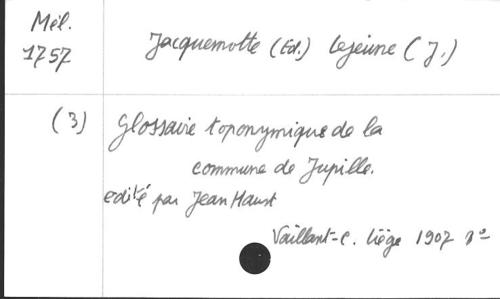 Mél. 1757
Jacquemotte (Ed.) Lejeune (J.)
(3) Glossaire toponymique de la
commune de Jupille.
edité par Jean Haust
Vaillant-C. Liège 1907 8°